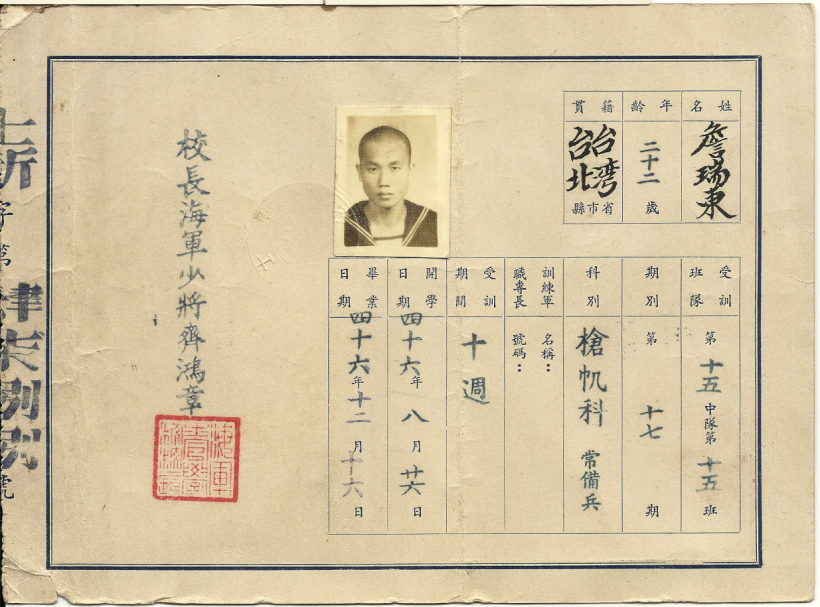 姓名
詹瑞東
年齡
二十二歲
籍貫
台灣省市
台北縣
受訓班隊
第十五中隊第十五班
期別
第十七期
科別
槍帆科 常備兵
訓練軍職專長
名稱：
號碼：
受訓期間
十週
開學日期
四十六年八月廿六日
畢業日期
四十六年十二月十六日
校長海軍少將齊鴻章
字第
號